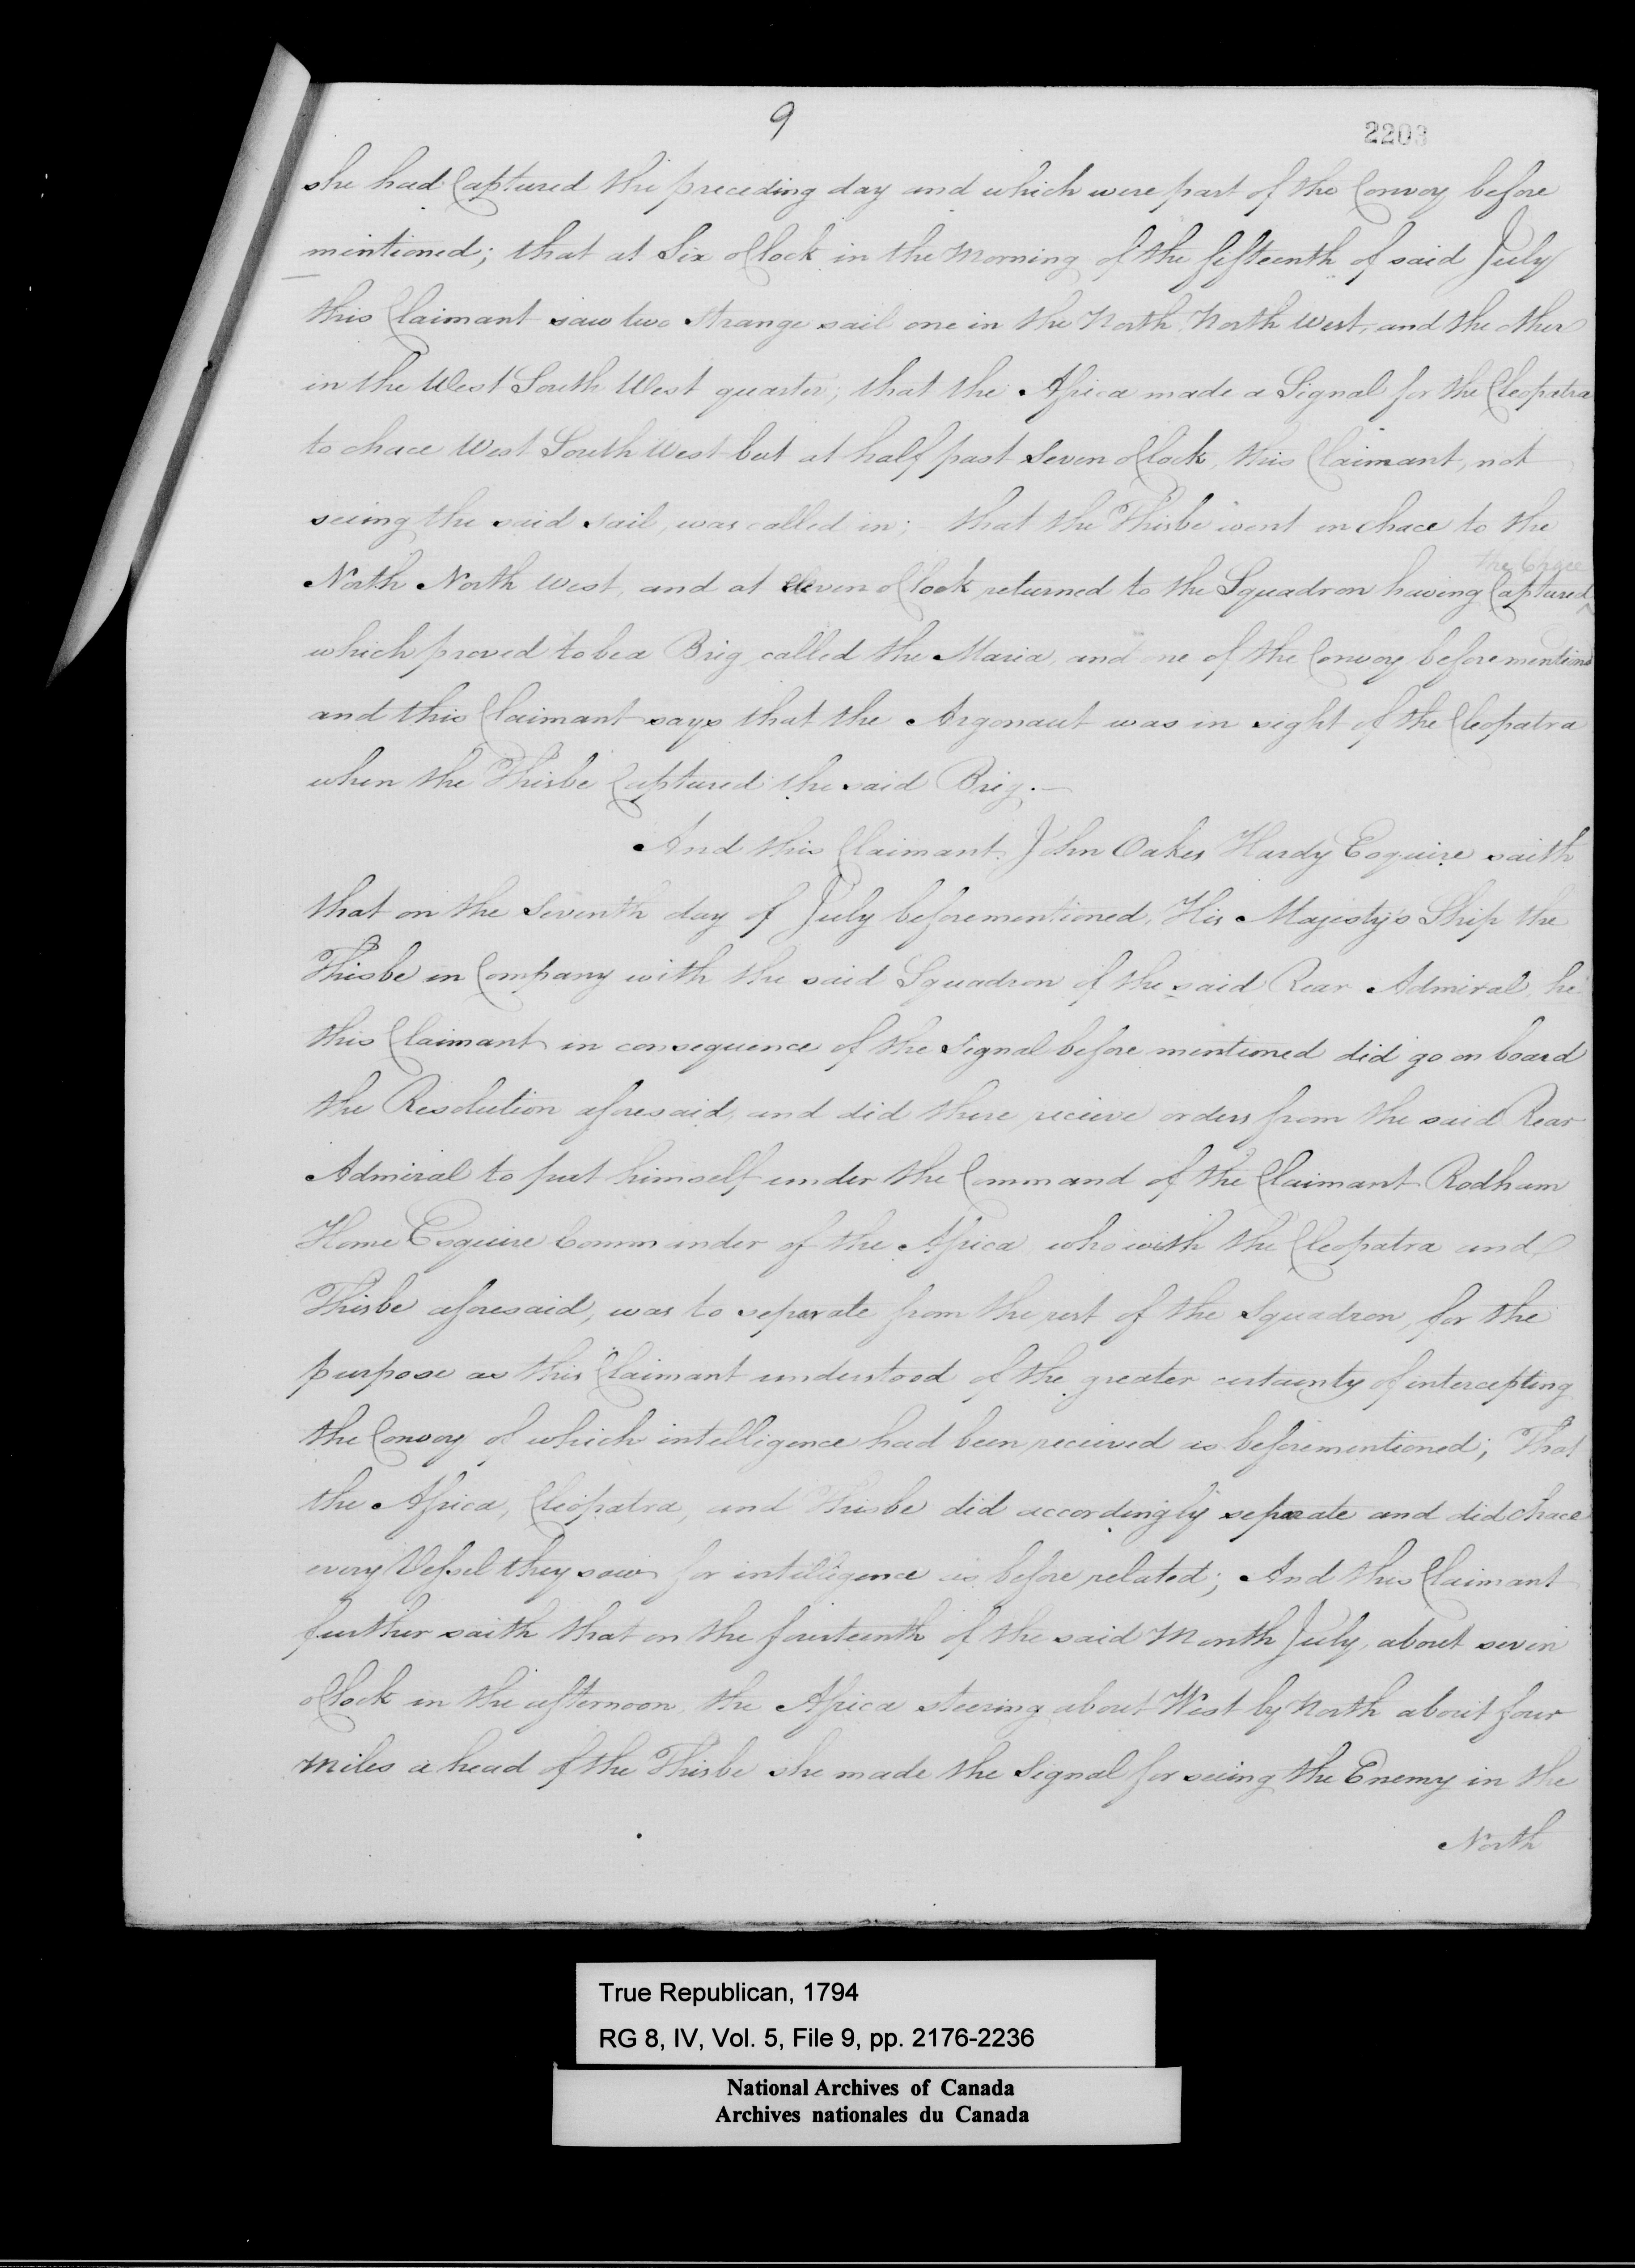 9
2203
she had Captured the preceding day and which were part of the Convoy before
mentioned; that at Six oClock in the Morning of the fifteenth of said July
this Claimant saw two strange sail one in the North North West, and the other
in the West South West quarter; that the Africa made a Signal for the Cleopatra
to chace West South West but at half past Seven oClock, this Claimant, not
seeing the said sail, was called in; - that the Thisbe went in chace to the
the Chace
North North West, and at eleven oClock returned to the Squadron having Captured ^
which proved to be a Brig called the Maria, and one of the Convoy beforementiond
and this Claimant says that the Argonaut was in sight of the Cleopatra
when the Thisbe Captured the said Brig. —
And this Claimant John Oakes Hardy Esquire saith
that on the Seventh day of July beforementioned, His Majesty's Ship the
Thisbe in Company with the said Squadron of the said Rear Admiral, he
this Claimant in consequence of the Signal before mentioned did go on board
the Resolution aforesaid, and did there recieve orders from the said Rear
Admiral to put himself under the Command of the Claimant Rodham
Home Esquire Commander of the Africa who with the Cleopatra and
Thisbe aforesaid, was to separate from the rest of the Squadron, for the
purpose as this Claimant understood of the greater certainty of intercepting
the Convoy of which intelligence had been recieved as beforementioned; That
the Africa, Cleopatra, and Thisbe did accordingly separate and did chace
every Vessel they saw for intelligence as before related; And this Claimant
further saith that on the fourteenth of the said Month July, about seven
oClock in the afternoon, the Africa steering about West by North about four
Miles a head of the Thisbe she made the Signal for seeing the Enemy in the
North
True Republican, 1794
RG 8, IV, Vol. 5, File 9, pp. 2176-2236
National Archives of Canada
Archives nationales du Canada